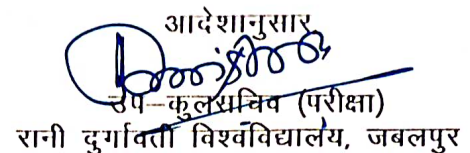 आदेशानुसार
उप–कुलसचिव (परीक्षा)
रानी दुर्गावती विश्वविद्यालय, जबलपुर